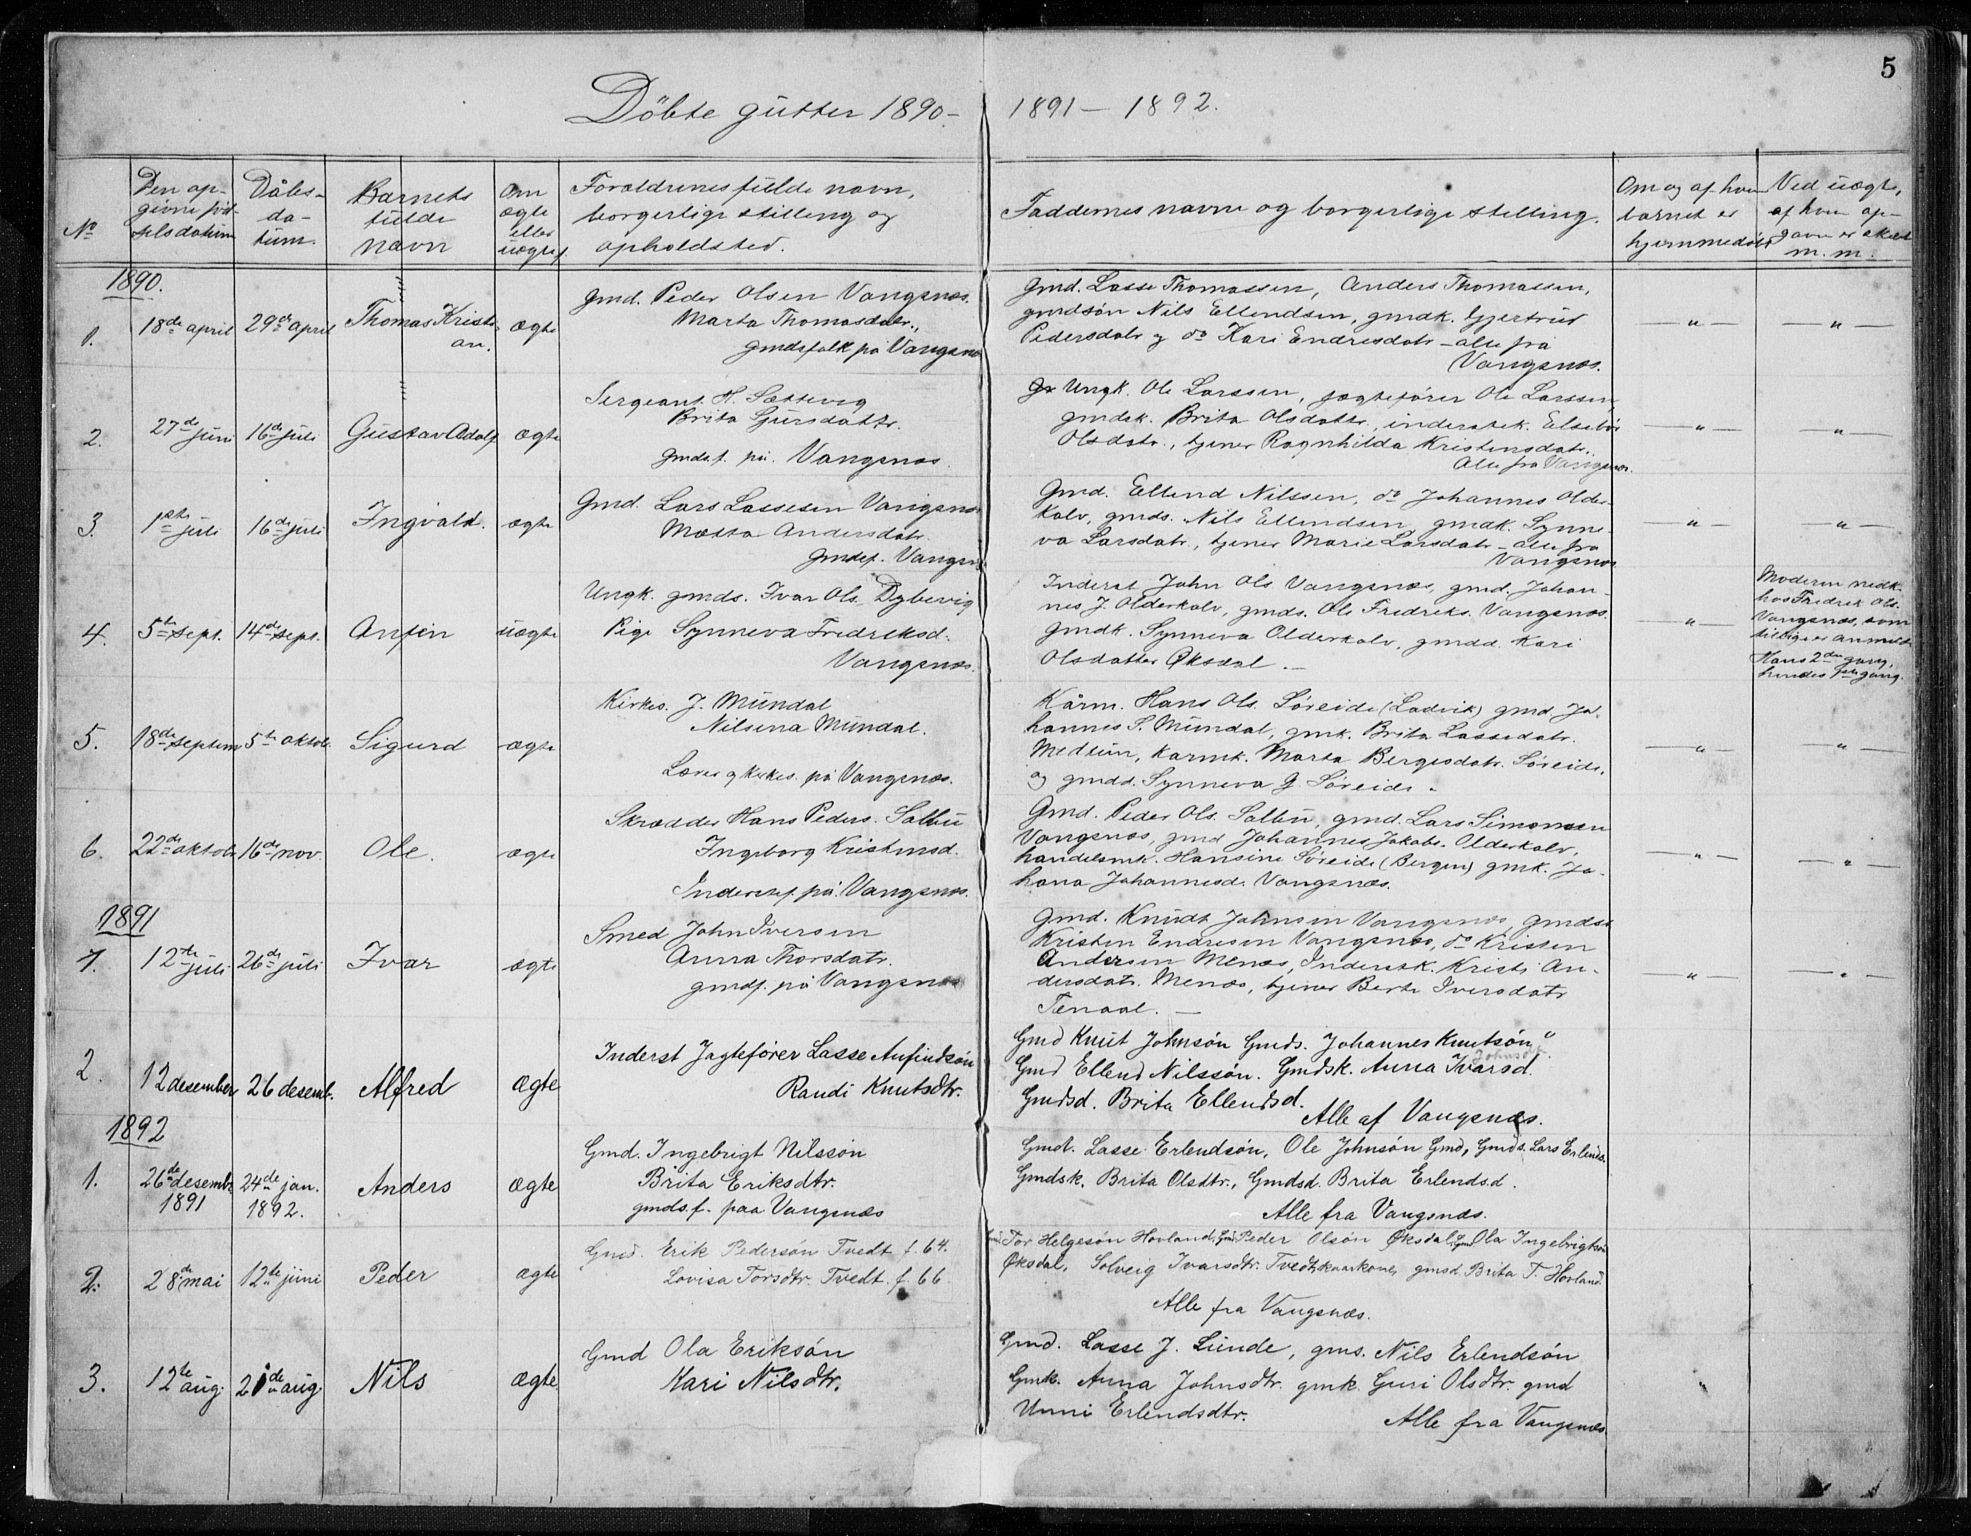 5
Döbte gutter 1890- 1891 - 1892.
No
Den op-
givne föd-
selsdatum
Dåbs-
da-
tum.
Barnets
fulde
navn
Om
ægte
eller
uægte
Forældrenes fulde navn,
borgerlige stilling og
opholdsted.
Faddernes navne og borgerlige stilling.
Om og af hvem
barnet er
hjemmedöbt
Ved uægte,
af hvem op-
gave er sket
m. m.
1890.
1. 18de april 29de april Thomas Kristi-
an. ægte
Gmd. Peder Olsen Vangsnæs.
Marta Thomasdatr.
gmdsfolk på Vangsnæs
Gmd. Lasse Thomassen, Anders Thomassen,
gmdsön Nils Ellendsen, gmdk. Gjertrud
Pedersdatr og do Kari Endresdatr - alle fra
Vangsnæs.
-"- -"-
2. 27de juni 16de juli Gustav Adolf ægte
Sergeant H. Sættevig
Brita Sjursdattr.
gmdsf. på Vangsnæs
Ungk. Ole Larssen, jægtefører Ole Larssen,
gmdsk. Brita Olsdattr, inderstek. Elsebe
Olsdatr., tjener Ragnhilda Kristensdatr.
Alle fra Vangsnæs.
-"- -"-
3. 1ste juli 16de juli Ingvald. ægte
Gmd. Lars Lassesen Vangsnæs
Mætta Andersdatr.
gmdsf. Vangsn.
Gmd. Ellend Nilssen, do Johannes Older-
kalv, gmds. Nils Ellendsen, gmdk. Synne-
va Larsdatr, tjener Marie Larsdatr - alle fra
Vangsnæs
-"- -"-
4. 5te sept. 14de sept. Anfin uægte
Ungk. gmds. Ivar Ols. Dybevig
Pige Synneva Fredriksd.
Vangsnæs.
Inderst John Ols Vangsnæs, gmd. Johan-
nes J. Olderkalv, gmds. Ole Fredriks. Vangsnæs.
gmdk. Synneva Olderkalv, gmdd. Kari
Olsdatter Øksdal. -
-"-
Moderen nedk.
hos Fredrik Ols.
Vangsnæs, som
tillige er anmeld.
Hans 2den gang,
hendes 1ste gang.
5. 18de septem 5te oktob. Sigurd ægte
Kirkes. J. Mundal
Nilsina Mundal.
Lærer og kirkes. på Vangsnæs.
Kårm. Hans Ols. Søreide (Ladvik) gmd. Jo-
hannes S. Mundal, gmk. Brita Lassedatr.
Medlun, karmk. Marta Bergesdatr. Søreide,
og gmdd. Synneva G. Søreide.
-"- -"-
6. 22de oktob. 16de nov. Ole. ægte
Skrædder Hans Peders. Salbu
Ingeborg Kristensd.
Inderstf. på Vangsnæs.
Gmd. Peder Ols. Salbu, gmd. Lars Simonsen
Vangsnæs, gmd Johannes Jakobs. Olderkalv,
handelsmk. Hansine Søreide (Bergen) gmk. Jo-
hana Johannesdr Vangsnæs.
-"- -"-
1891
1. 12te juli 26de juli Ivar ægte
Smed John Iversen
Anna Thorsdatr.
gmdf. på Vangsnæs
Gmd. Knudt Johnsen Vangsnæs, gmdss
Kristen Endresen Vangsnæs, do Kristen
Andersen Menæs, Inderstk. Kristi An-
dersdatr. Menæs, tjener Berte Iversdatr
Tenaal. -
-"- -"-
2. 12 desember 26 desemb. Alfred ægte
Inderst Jagtefører Lasse Anfindsön
Randi Knutsdtr.
Gmd Knut Johnsön Gmds. Johannes Knutsön"
Johnsdtr.
Gmd Ellend Nilssön. Gmdsk. Anna Ivarsd.
Gmdsd. Brita Ellendsd.
Alle af Vangsnæs.
1892
1. 26de desembr 1891 24de jan. 1892. Anders ægte
Gmd. Ingebrigt Nilssön
Brita Eriksdtr.
gmds.f. paa Vangsnæs
Gmd. Lasse Erlendsön, Ole Johnsön Gmd, Gmds. Lars Erlends.
Gmdsk. Brita Olsdtr., Gmdsd. Brita Erlendsd.
Alle fra Vangsnæs.
2. 28de mai 12te juni Peder ægte
Gmd. Erik Pedersön Tvedt f. 64.
Lovisa Torsdtr. Tvedt. f. 66.
Gmd Tor Helgesön Hovland, Gmd Peder Olsön Øksdal, Gmd Ola Ingebrigtsön
Øksdal, Solveig Ivarsdtr. Tvedt kaarkone, gmsd. Brita T. Hovland.
Alle fra Vangsnæs.
3. 12te aug. 21de aug. Nils ægte
Gmd Ola Eriksön
Kari Nilsdtr.
Gmd. Lasse J. Lunde, gms. Nils Erlendsön
Gmk. Anna Johnsdtr. gmk. Guri Olsdtr. gmd
Unni Erlendsdtr.
Alle fra Vangsnæs